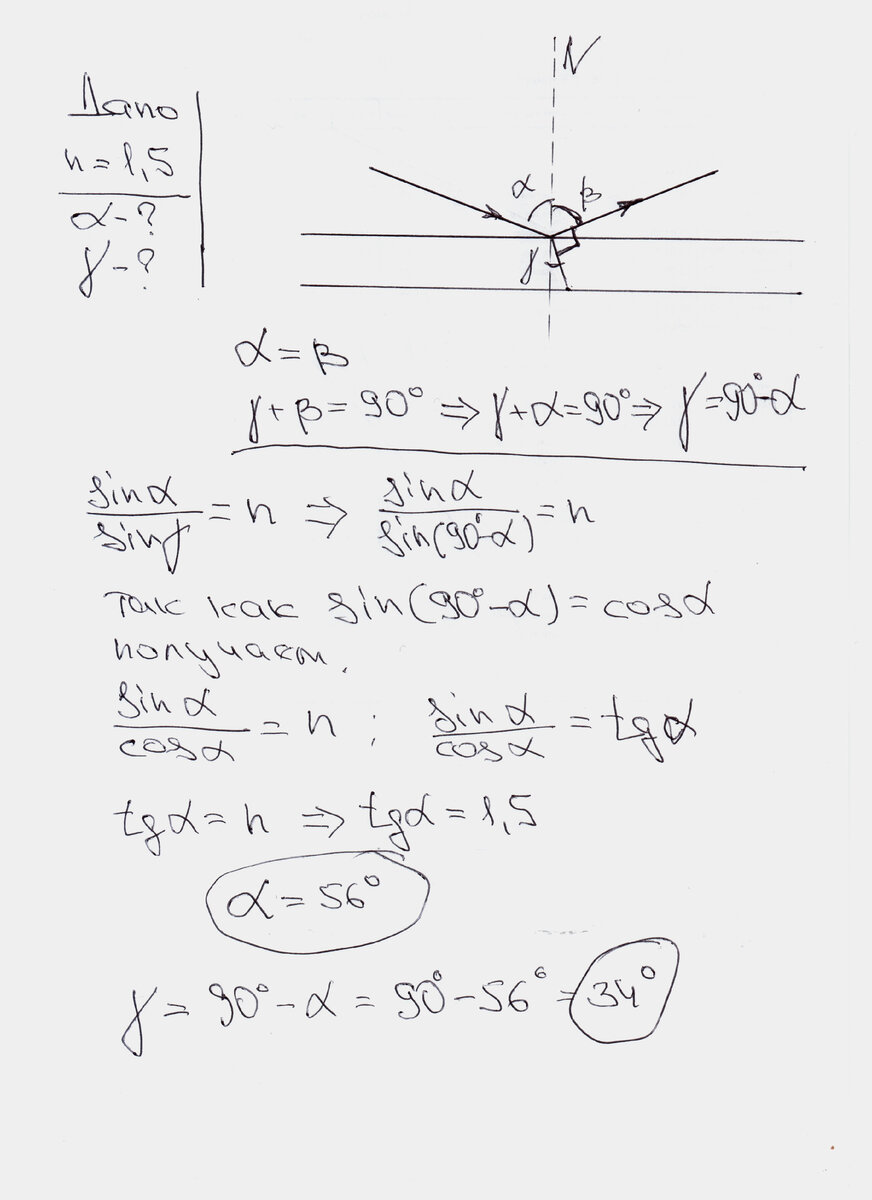 Дано
n = 1,5
α - ?
γ - ?
N
α β
γ
α = β
γ + β = 90° ⇒ γ + α = 90° ⇒ γ = 90° - α
sinα / sinγ = n ⇒ sinα / sin(90° - α) = n
так как sin(90° - α) = cosα
получаем.
sinα / cosα = n ; sinα / cosα = tgα
tgα = n ⇒ tgα = 1,5
α = 56°
γ = 90° - α = 90° - 56° = 34°